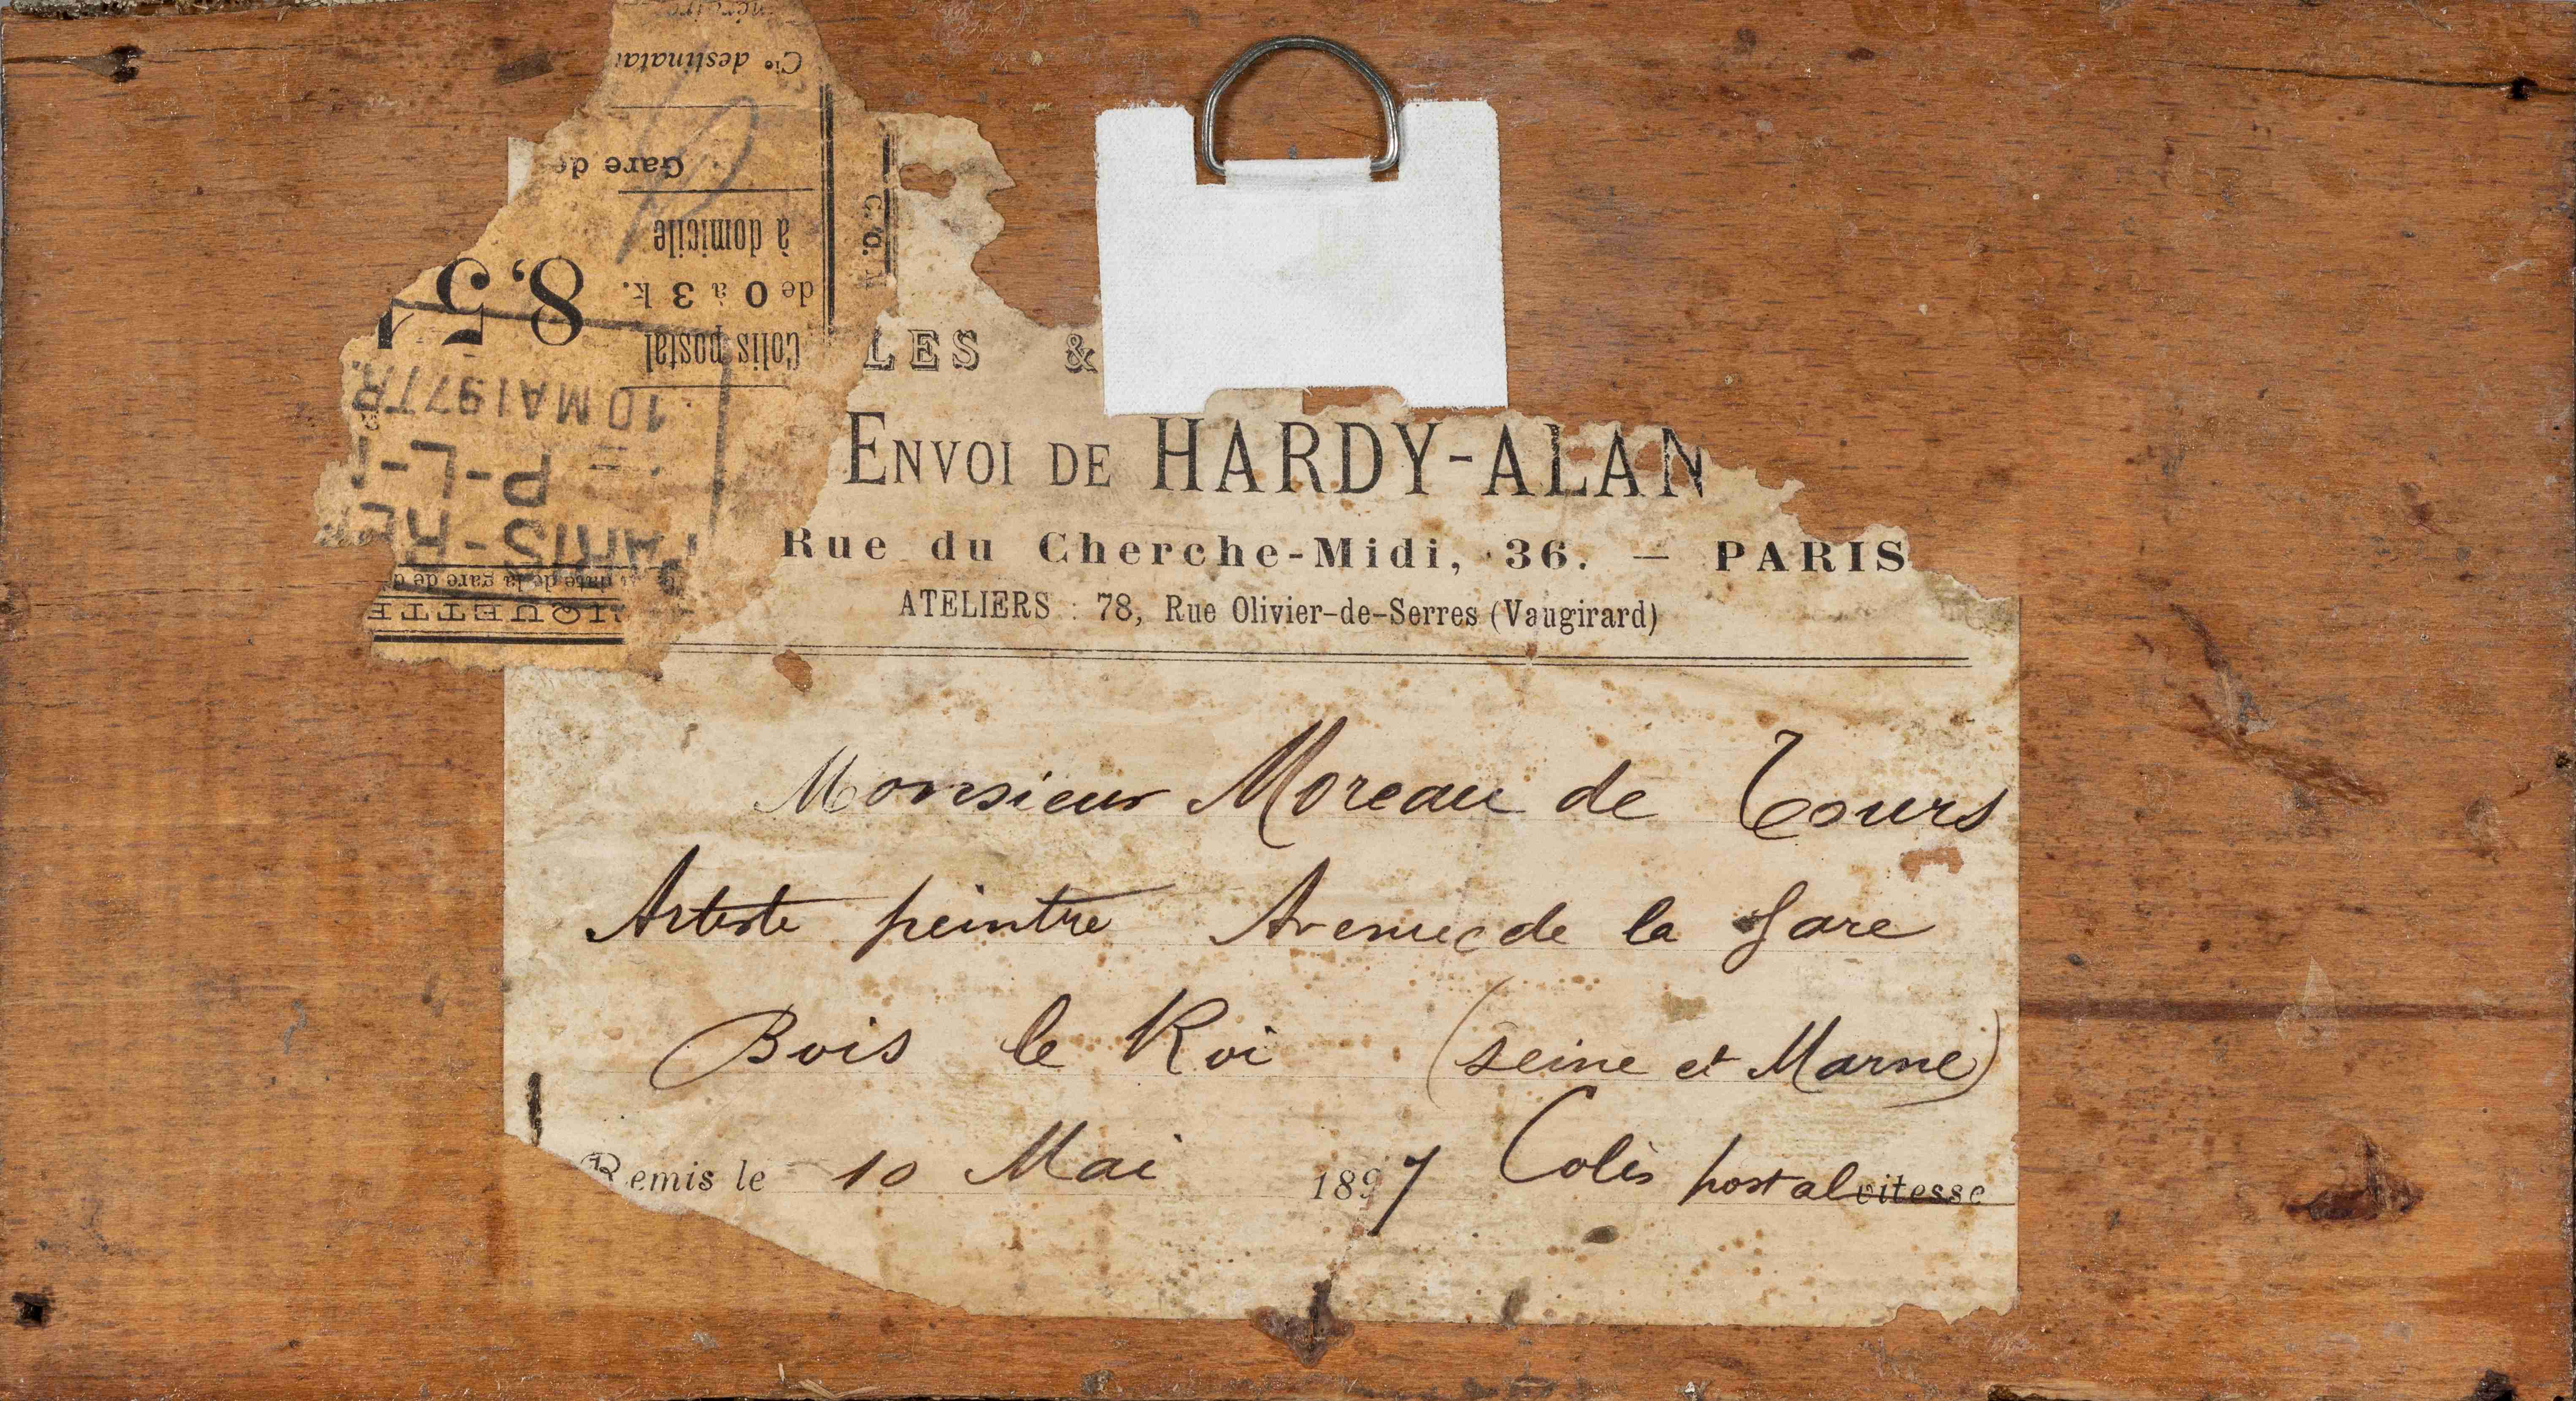 LES &
ENVOI DE HARDY-ALAN
Rue du Cherche-Midi, 36. — PARIS
ATELIERS : 78, Rue Olivier-de-Serres (Vaugirard)
Monsieur Moreau de Tours
Artiste peintre Avenue de la Gare
Bois le Roi (Seine et Marne)
Remis le 10 Mai 1897 Colis postal vitesse
IQUETTE
date de la gare de d
PARIS-
P-L-
10 MAI 97
Colis postal
de 0 à 3 k.
à domicile
8,5
Gare de
Cie destinatai